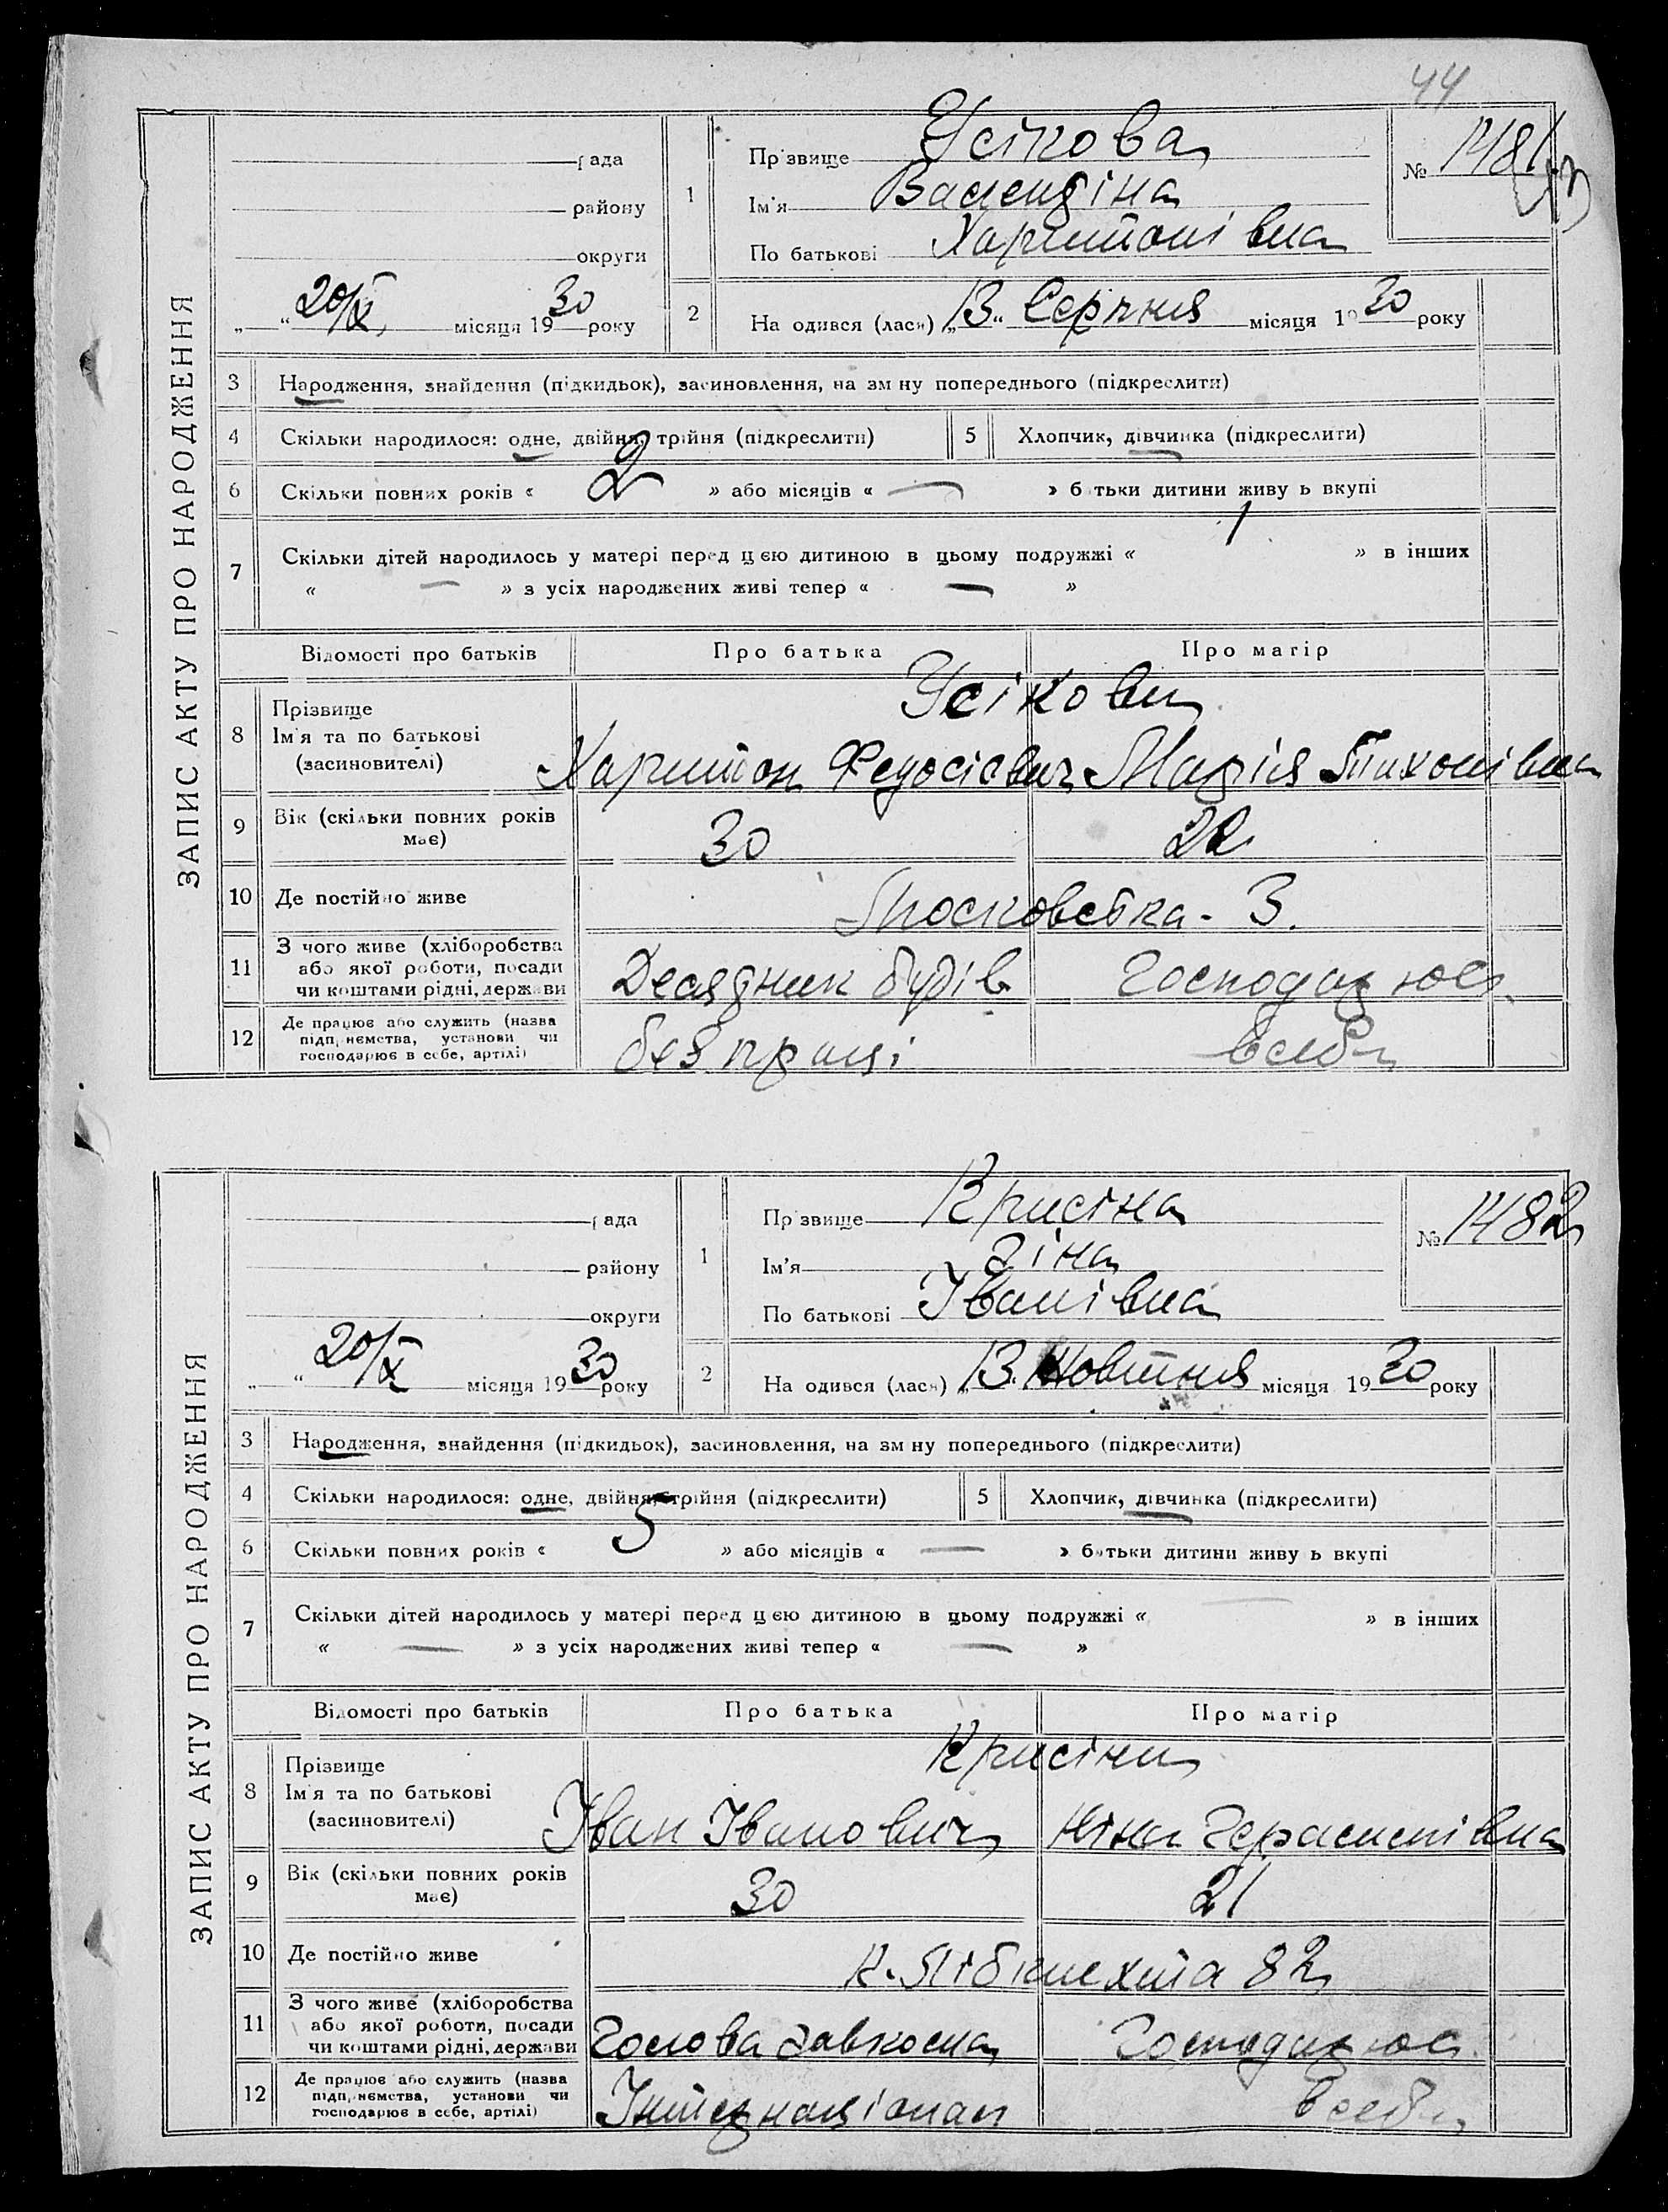 44
ЗАПИС АКТУ ПРО НАРОДЖЕННЯ
рада
району
округи
„ “ 20/X місяця 1930 року
1
Прізвище Усікова
Ім'я Валентіна
По батькові Харитонівна
№ 1481
2
На одився (лася) „13“ Серпня місяця 1930 року
3 Народження, знайдення (підкидьок), засиновлення, на зм ну попереднього (підкреслити)
4 Скільки народилося: одне, двійня, трійня (підкреслити) 5 Хлопчик, дівчинка (підкреслити)
6 Скільки повних років « 2 » або місяців « — » батьки дитини живу ь вкупі
7 Скільки дітей народилось у матері перед цією дитиною в цьому подружжі « 1 » в інших
« — » з усіх народжених живі тепер « — »
Відомості про батьків Про батька Про матір
8 Прізвище Усікови
Ім'я та по батькові
(засиновителі) Харитон Федосієвич Марія Тихонівна
9 Вік (скільки повних років має) 30 22
10 Де постійно живе Московська - 3.
11 З чого живе (хліборобства
або якої роботи, посади
чи коштами рідні, держави Десятник будів Господарює
12 Де працює або служить (назва
підприємства, установи чи
господарює в себе, артілі) без праці в себе
ЗАПИС АКТУ ПРО НАРОДЖЕННЯ
рада
району
округи
„ “ 20/X місяця 1930 року
1
Прізвище Крисіна
Ім'я Зіна
По батькові Іванівна
№ 1482
2
На одився (лася) „13. Жовтня місяця 1930 року
3 Народження, знайдення (підкидьок), засиновлення, на зм ну попереднього (підкреслити)
4 Скільки народилося: одне, двійня, трійня (підкреслити) 5 Хлопчик, дівчинка (підкреслити)
6 Скільки повних років « 5 » або місяців « — » батьки дитини живу ь вкупі
7 Скільки дітей народилось у матері перед цією дитиною в цьому подружжі « — » в інших
« — » з усіх народжених живі тепер « — »
Відомості про батьків Про батька Про матір
8 Прізвище Крисіни
Ім'я та по батькові
(засиновителі) Іван Іванович Ніна Герасимівна
9 Вік (скільки повних років має) 30 21
10 Де постійно живе К. Лібкнехта 82
11 З чого живе (хліборобства
або якої роботи, посади
чи коштами рідні, держави Голова завкома Господарює
12 Де працює або служить (назва
підприємства, установи чи
господарює в себе, артілі) Інтернаціонал в себе